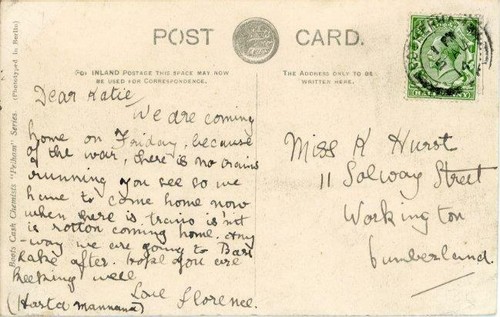 POST CARD.
FOR INLAND POSTAGE THIS SPACE MAY NOW
BE USED FOR CORRESPONDENCE.
THE ADDRESS ONLY TO BE
WRITTEN HERE.
Boots Cash Chemists "Pelham" Series (Phototyped in Berlin)
Dear Katie,
We are coming
home on Friday, because
of the war, there is no trains
running you see so we
have to come home now
when there is trains isn't
is rotton coming home. Any
-way we are going to
Lake after. Hope you are
keeping well
Love Florence.
(Harta Mannana)
Miss K Hurst
11 Solway Street
Workington
Cumberland.